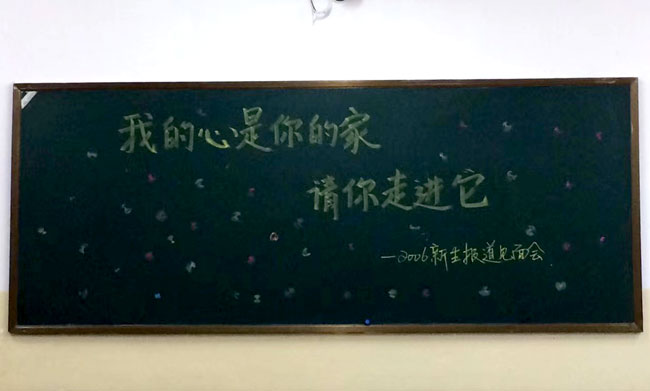 我的心是你的家
请你走进它
—2006新生报道见面会